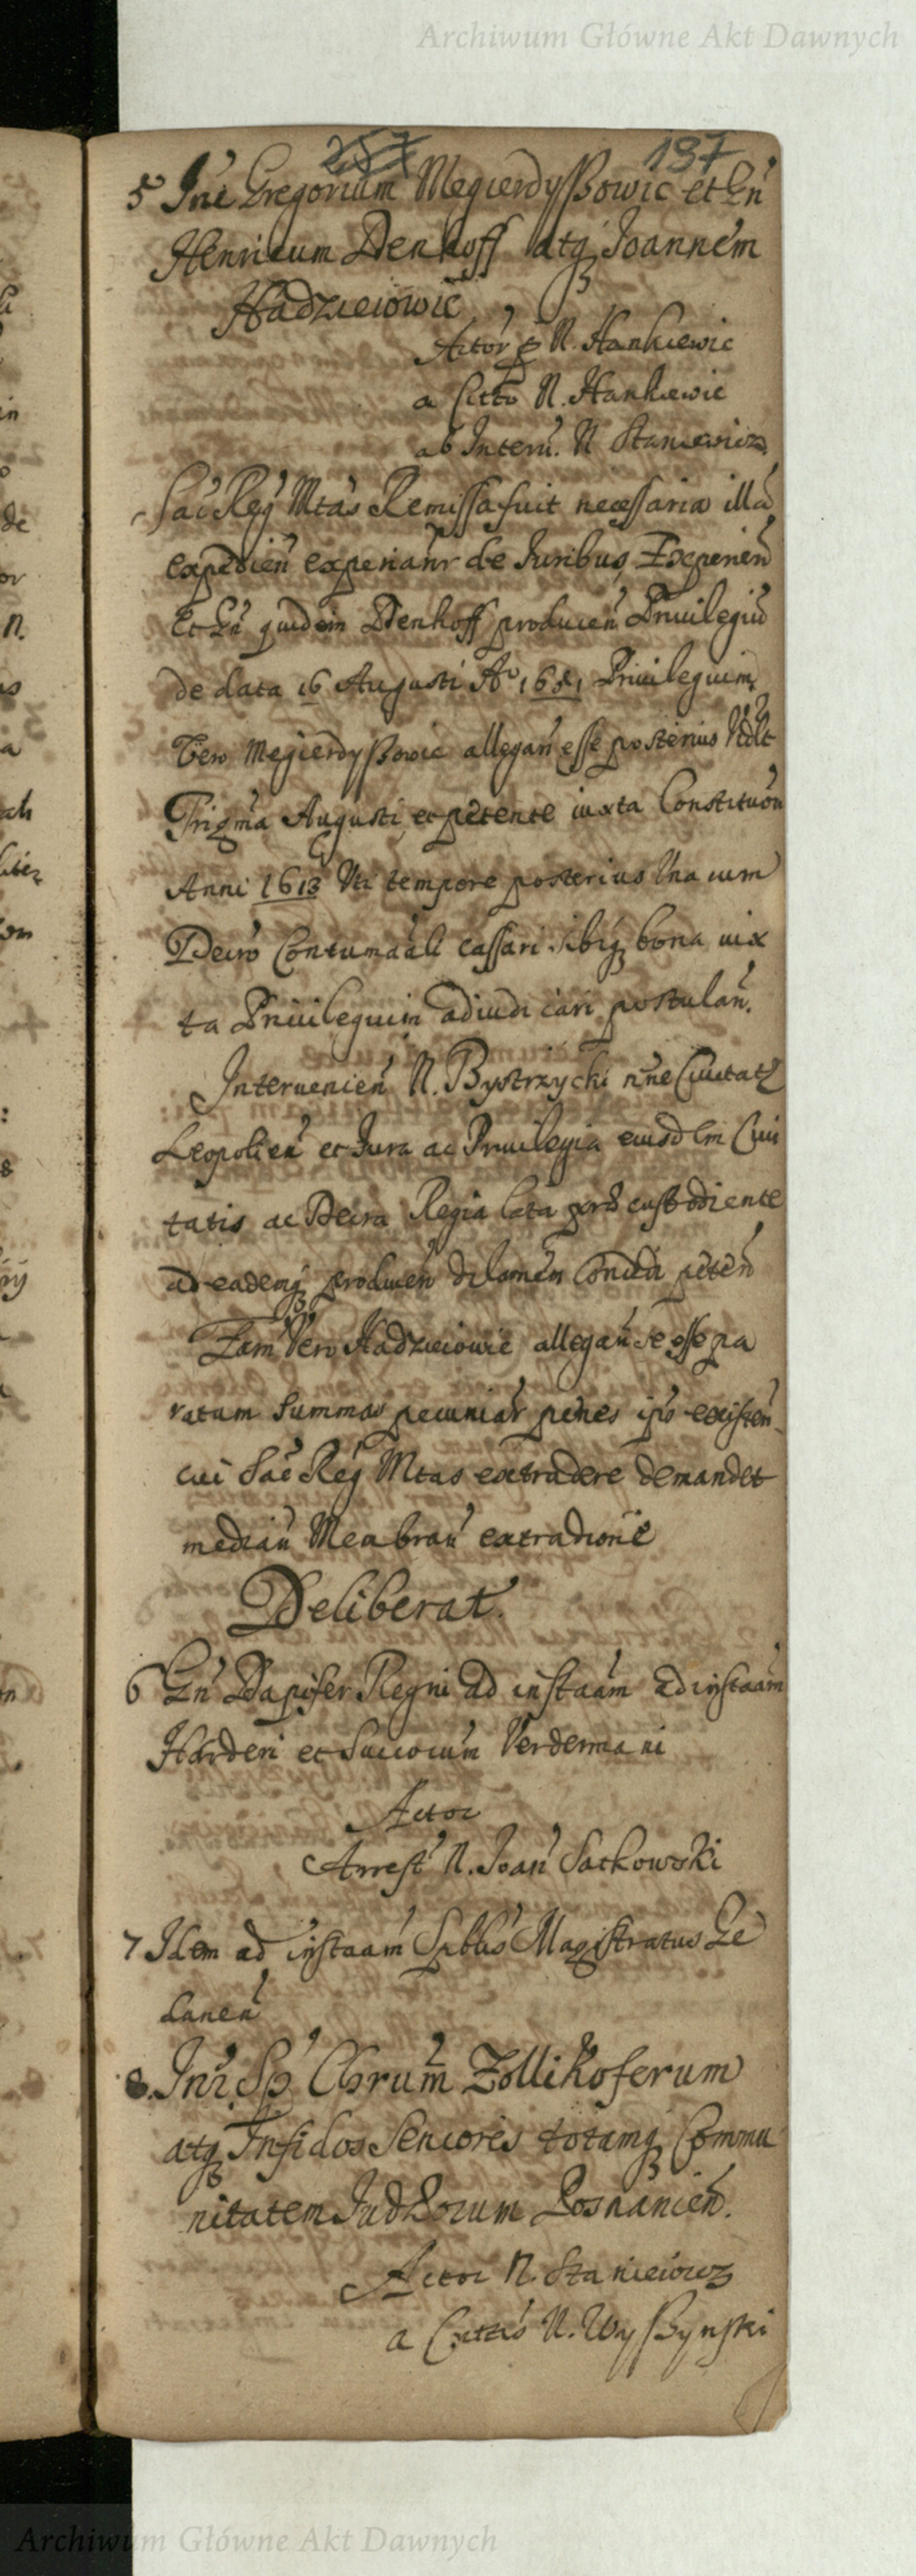 Archiwum Główne Akt Dawnych
257 137
5 Inr Gregorium Megierdyszowic et Gn
Henricum Denhoff atq Joannem
Hadzieiowic
Actor p N. Hankiewic
a Citto N. Hankiewic
ab Interu. N Staniewicz
Sac Reg Mtas Remissa fuit necessaria illa
expedien experianr de Iuribus, Experien
Et Gn quidem Denhoff producen Priuilegiu
de data 16 Augusti Ao 1681 Priuilegium
Vero Megierdyszowic allegan esse posterius Vidlt
Trigma Augusti, et petente iuxta Constituon
Anni 1613 Uti tempore posterius Una cum
Decro Contumaali cassari sibiq bona iux
ta Priuilegium adiudicari postulan.
Interuenien N. Bystrzycki nne Ciuitatis
Leopolien et Iura ac Priuilegia eiusdem Ciui
tatis ac Decra Regia lata custodiente
ad eademq producen dilaonem Condi peten
Fam Vero Hadzieiowic allegan se esse pa
ratum Summas pecuniar penes ips existen
cui Sac Reg Mtas extradere demandet
median Membran extradione
Deliberat.
6 Gn Dapifer Regni ad instaam ad instaam
Harderi et Sucorum Verdermani
Actor
Arrest N. Joan Sackowski
7 Idem ad instaam Spblis Magistratus Ge
danen
8. Inr Sp Chrum Zollikoferum
atq Infidos Seniores totamq Commu
nitatem Judaeorum Posnanien.
Actor N. Staniewicz
a Cittis N. Wyszynski
Archiwum Główne Akt Dawnych